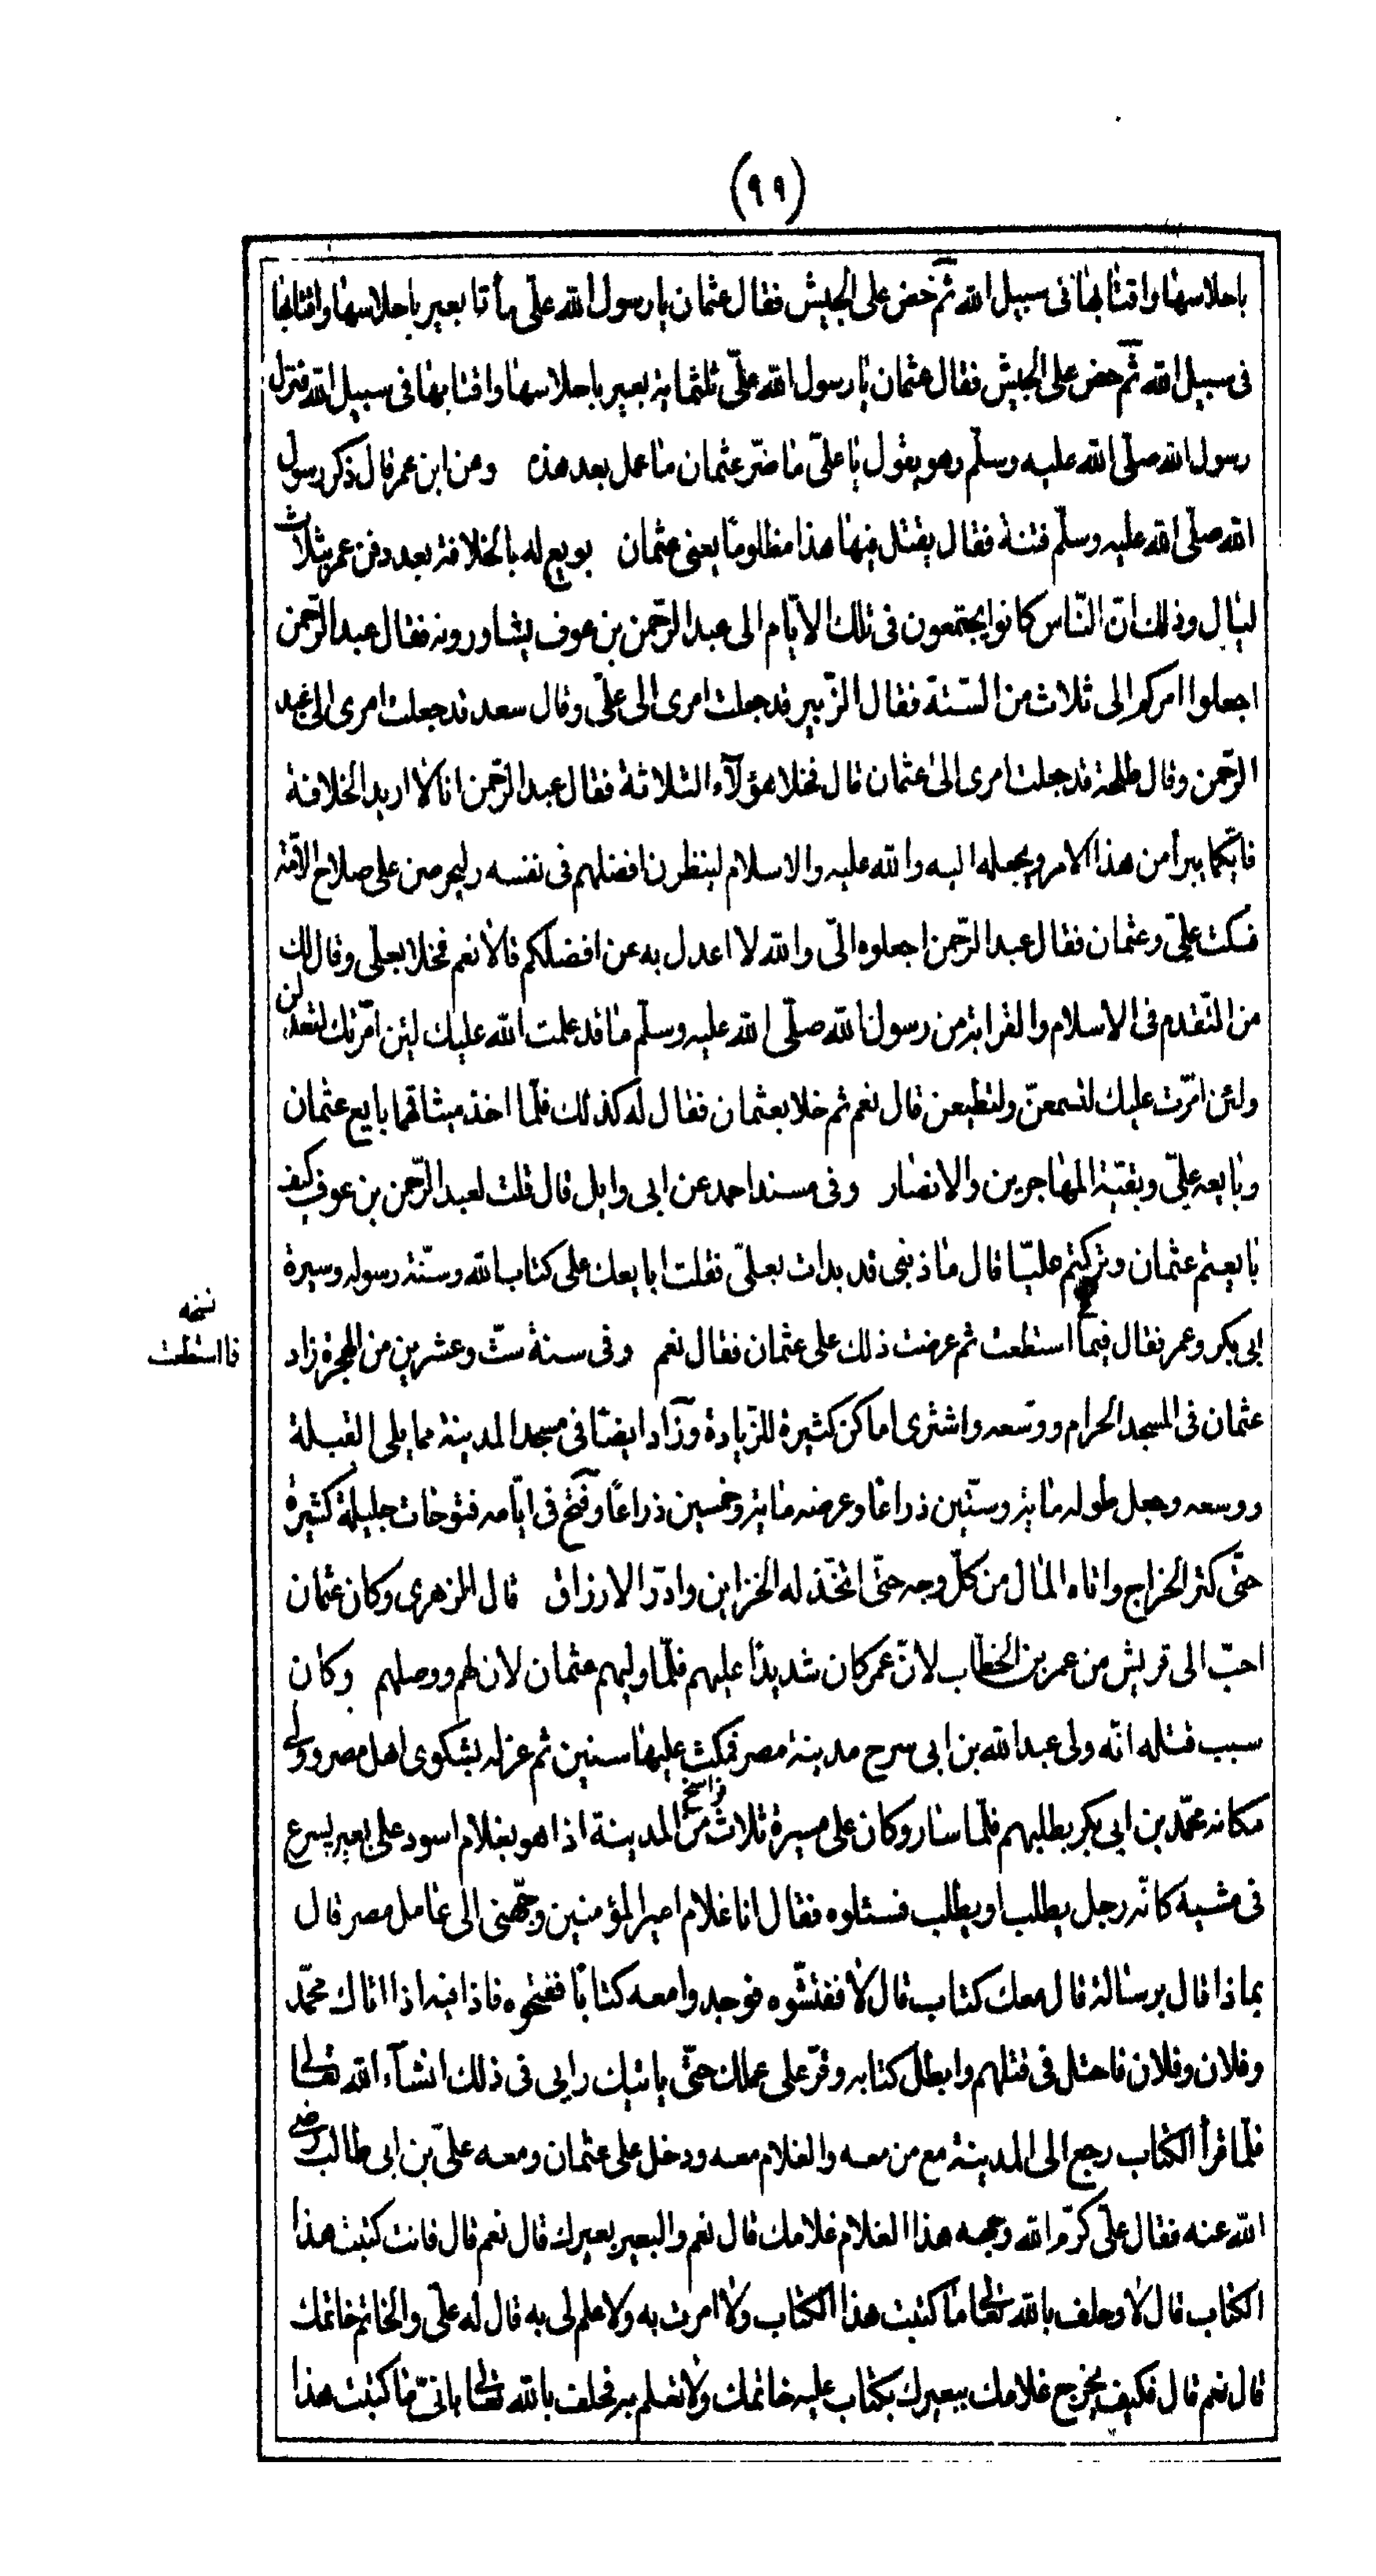 (٩٩)
باحلاسها واقتابها فى سبيل الله ثم حض على الجيش فقال عثمان يا رسول الله علىّ مأتا بعير باحلاسها واقتابها
فى سبيل الله ثم حض على الجيش فقال عثمان يا رسول الله علىّ ثلثماية بعير باحلاسها واقتابها فى سبيل الله فنزل
رسول الله صلّى الله عليه وسلّم وهو يقول يا علىّ ما ضرّ عثمان ما عمل بعد هذه وعن ابن عمر قال ذكر رسول
الله صلّى الله عليه وسلّم فتنة فقال يقتل فيها هذا مظلوما يعنى عثمان بويع له بالخلافة بعد دفن عمر بثلاث
ليال وذلك انّ النّاس كانوا يجتمعون فى تلك الايّام الى عبد الرّحمن بن عوف يشاورونه فقال عبد الرّحمن
اجعلوا امركم الى ثلاث من السّتة فقال الزّبير قد جعلت امرى الى علىّ وقال سعد قد جعلت امرى الى عبد
الرّحمن وقال طلحة قد جعلت امرى الى عثمان قال فخلا هؤلآء الثلاثة فقال عبد الرّحمن انا لا اريد الخلافة
فايّكما يبرأ من هذا الامر ويجعله اليه والله عليه والاسلام لينظرن افضلهم فى نفسه وليحرصن على صلاح الامّة
فسكت علىّ وعثمان فقال عبد الرّحمن اجعلوه الىّ والله لا اعدل به عن افضلكم قالا نعم فخلا بعلى وقال لك
من التّقدم فى الاسلام والقرابة من رسول الله صلّى الله عليه وسلّم ما قد علمت الله عليك لئن امّرتك لتعدلن
ولئن امّرت عليك لتسمعنّ ولتطيعن قال نعم ثم خلا بعثمان فقال له كذلك فلّما اخذ ميثاقهما بايع عثمان
وبايعه علىّ وبقيّة المهاجرين والانصار وفى مسند احمد عن ابى وايل قال قلت لعبد الرّحمن بن عوف كيف
بايعتم عثمان وتركتم عليّا قال ما ذنبى قد بدات بعلىّ فقلت ابايعك على كتاب الله وسنّة رسوله وسيرة
ابى بكر وعمر فقال فيما استطعت ثم عرضت ذلك على عثمان فقال نعم وفى سنة ستّ وعشرين من الهجرة زاد
نسخه
فا استطعت
عثمان فى المسجد الحرام ووسّعه واشترى اماكن كثيرة للزّيادة وزاد ايضا فى مسجد المدينة مما يلى القبلة
ووسعه وجعل طوله ماية وستّين ذراعا وعرضه ماية وخمسين ذراعًا وفتح فى ايّامه فتوحات جليلة كثيرة
حتّى كثر الخراج واتاه المال من كلّ وجه حتّى اتخّذ له الخزاين وادرّ الارزاق قال الزهرى وكان عثمان
احبّ الى قريش من عمر بن الخطّاب لانّ عمر كان شديدًا عليهم فلمّا وليهم عثمان لان لهم ووصلهم وكان
سبب قتله انّه ولى عبد الله بن ابى سرح مدينة مصر فمكث عليها سنين ثم عزله بشكوى اهل مصر وولى
مكانه محمّد بن ابى بكر بطلبهم فلّما سار وكان على مسيرة ثلاث فراسخ من المدينة اذا هو بغلام اسود على بعير يسرع
فى مشيه كانّه رجل يطلب او يطلب فسئلوه فقال انا غلام امير المؤمنين وجّهنى الى عامل مصر قال
بماذا قال برسالة قال معك كتاب قال لا ففتشّوه فوجدوا معه كتابًا ففتحوه فاذا فيه اذا اتاك محمّد
وفلان وفلان فاحتل فى قتلهم وابطل كتابه وقرّ على عملك حتّى ياتيك رايى فى ذلك انشآء الله تعالى
فلّما قرأ الكتاب رجع الى المدينة مع من معه والغلام معه ودخل على عثمان ومعه علىّ بن ابى طالب رضى
الله عنه فقال علىّ كرّم الله وجهه هذا الغلام غلامك قال نعم والبعير بعيرك قال نعم قال فانت كتبت هذا
الكتاب قال لا وحلف بالله تعالى ما كتبت هذا الكتاب ولا امرت به ولا علم لى به قال له علىّ والخاتم خاتمك
قال نعم قال فكيف يخرج غلامك ببعيرك بكتاب عليه خاتمك ولا تعلم به فحلف بالله تعالى بانىّ ما كتبت هذا